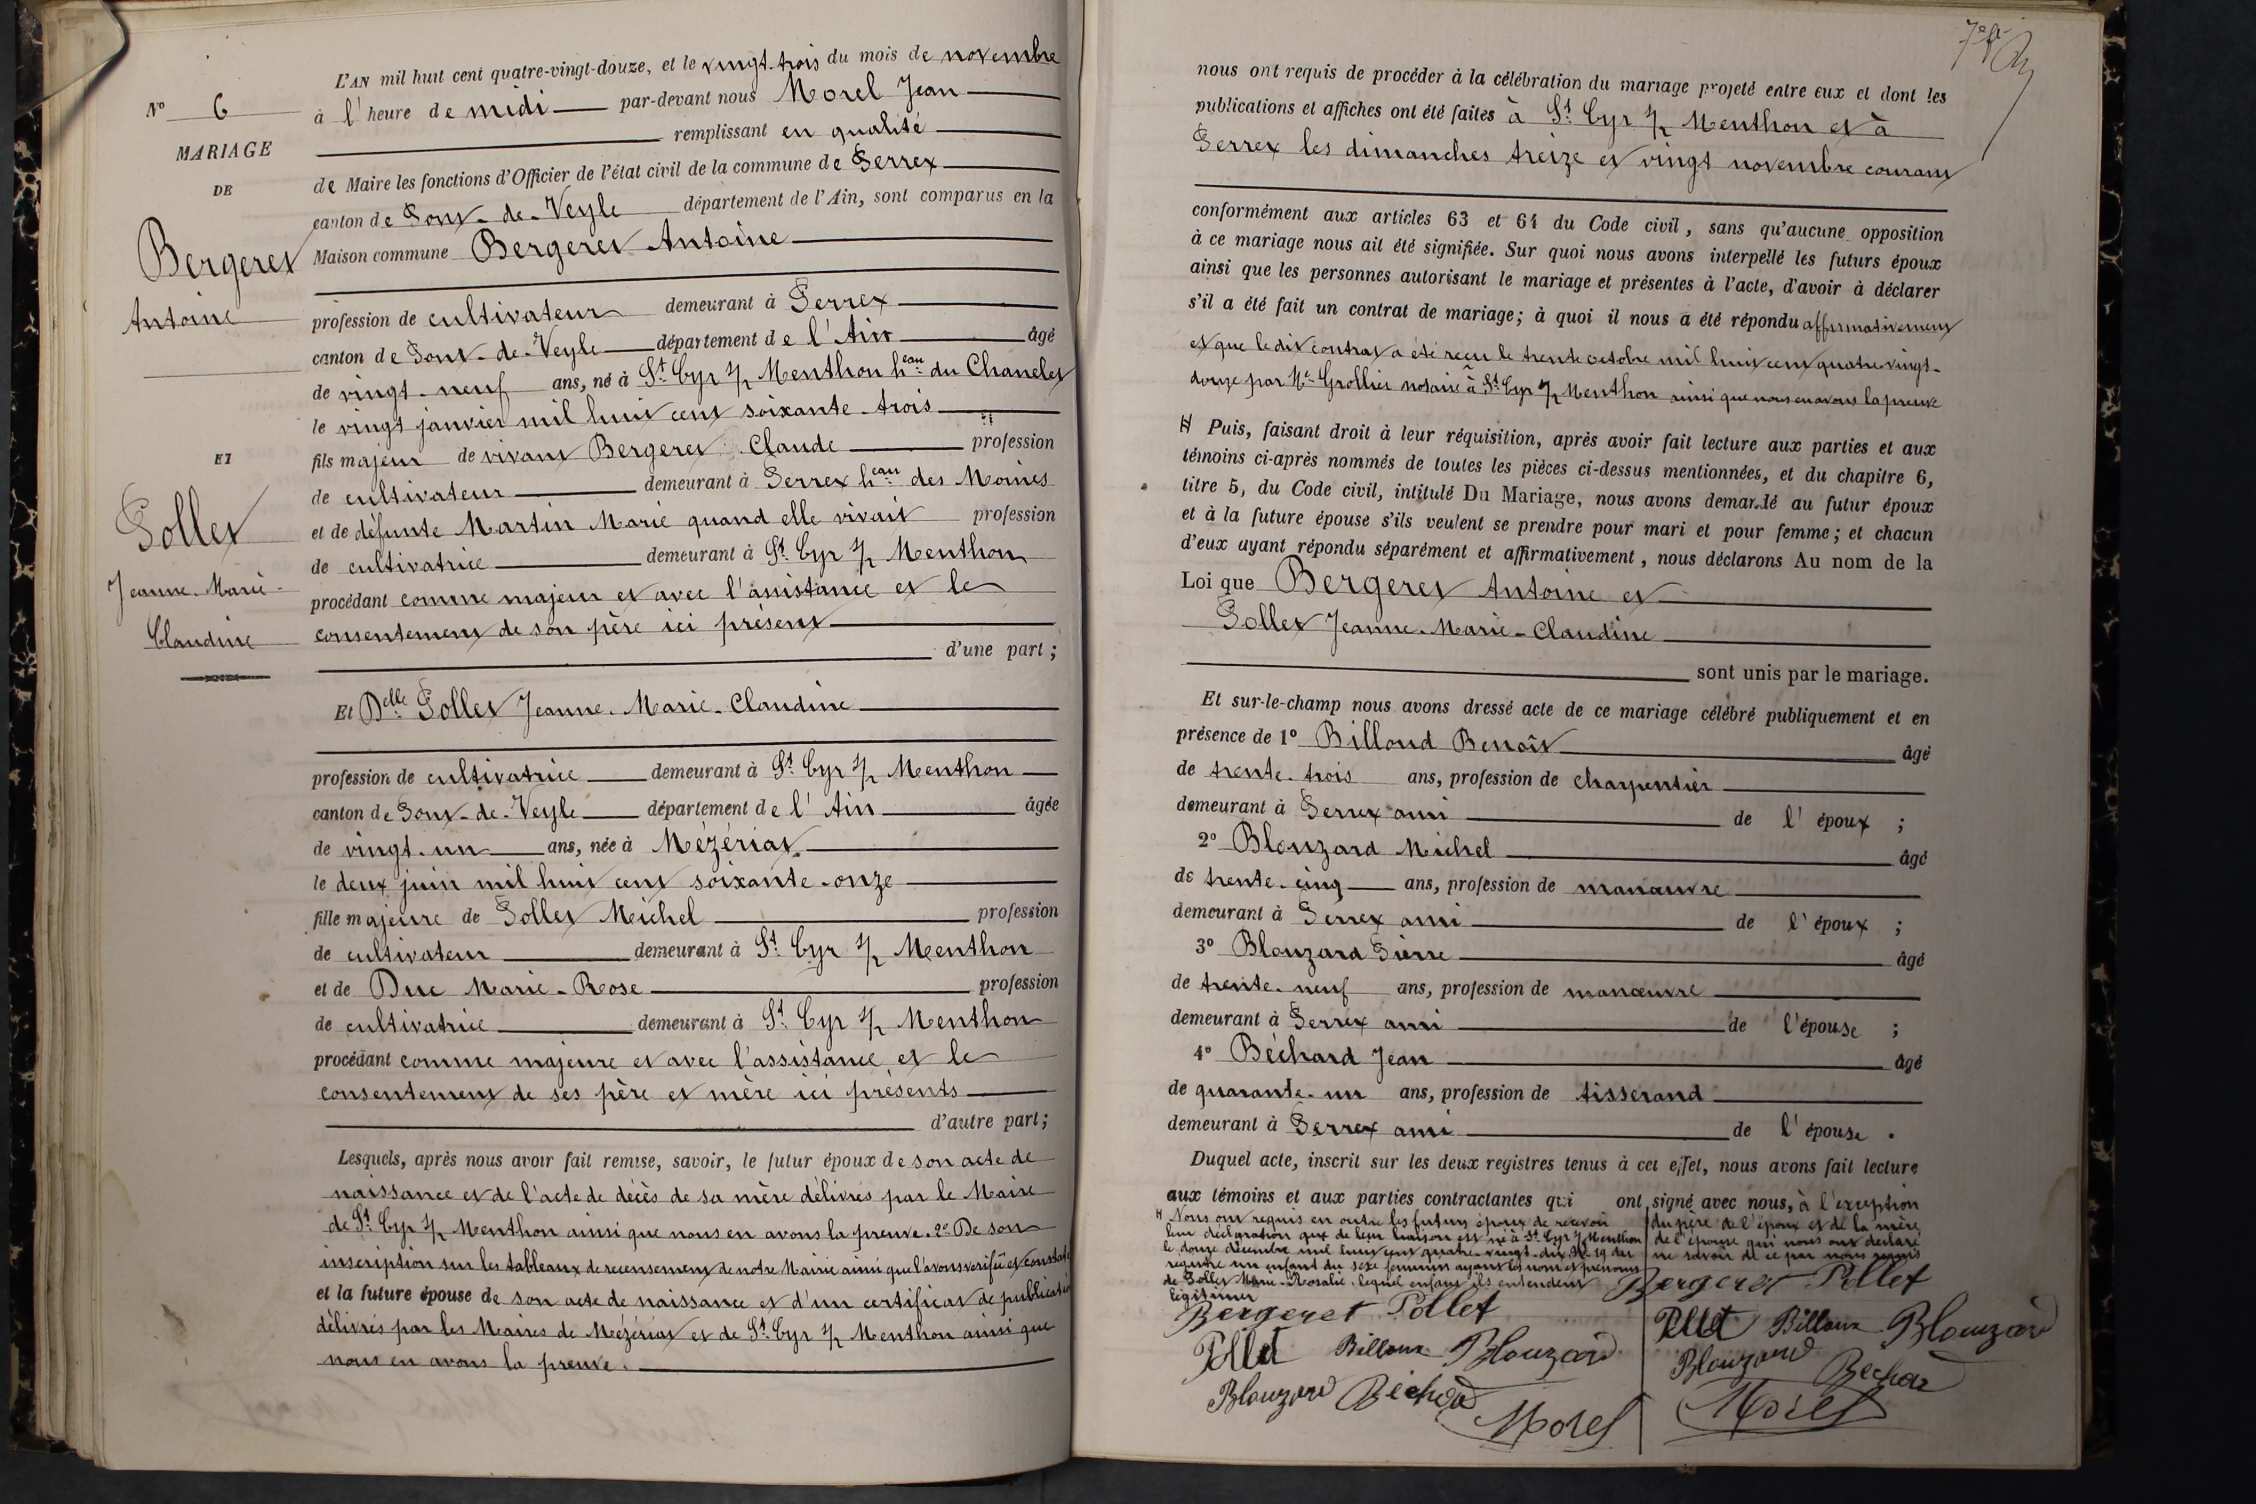 L'AN mil huit cent quatre-vingt-douze, et le vingt-trois du mois de novembre
à l'heure de midi par-devant nous Morel Jean
remplissant en qualité
de Maire les fonctions d'Officier de l'état civil de la commune de Perrex
canton de Pont-de-Veyle département de l'Ain, sont comparus en la
Maison commune Bergeret Antoine
profession de cultivateur demeurant à Perrex
canton de Pont-de-Veyle département de l'Ain âgé
de vingt-neuf ans, né à St Cyr s/ Menthon heau du Chanelet
le vingt janvier mil huit cent soixante-trois
fils majeur de vivant Bergeret Claude profession
de cultivateur demeurant à Perrex heau des Moines
et de défunte Martin Marie quand elle vivait profession
de cultivatrice demeurant à St Cyr s/ Menthon
procédant comme majeur et avec l'assistance et le
consentement de son père ici présent
d'une part ;
Et Delle Pollet Jeanne-Marie-Claudine
profession de cultivatrice demeurant à St Cyr s/ Menthon
canton de Pont-de-Veyle département de l'Ain âgée
de vingt-un ans, née à Mézériat
le deux juin mil huit cent soixante-onze
fille majeure de Pollet Michel profession
de cultivateur demeurant à St Cyr s/ Menthon
et de Duc Marie-Rose profession
de cultivatrice demeurant à St Cyr s/ Menthon
procédant comme majeure et avec l'assistance et le
consentement de ses père et mère ici présents
d'autre part ;
Lesquels, après nous avoir fait remise, savoir, le futur époux de son acte de
naissance et de l'acte de décès de sa mère délivrés par le Maire
de St Cyr s/ Menthon ainsi que nous en avons la preuve. 2º De son
inscription sur les tableaux de recensement de notre Mairie ainsi que l'avons vérifié et constaté
et la future épouse de son acte de naissance et d'un certificat de publication
délivrés par les Maires de Mézériat et de St Cyr s/ Menthon ainsi que
nous en avons la preuve.
Nº 6
MARIAGE
DE
Bergeret
Antoine
ET
Pollet
Jeanne-Marie-
Claudine
nous ont requis de procéder à la célébration du mariage projeté entre eux et dont les
publications et affiches ont été faites à St Cyr s/ Menthon et à
Perrex les dimanches treize et vingt novembre courant
conformément aux articles 63 et 64 du Code civil, sans qu'aucune opposition
à ce mariage nous ait été signifiée. Sur quoi nous avons interpellé les futurs époux
ainsi que les personnes autorisant le mariage et présentes à l'acte, d'avoir à déclarer
s'il a été fait un contrat de mariage ; à quoi il nous a été répondu affirmativement
et que le dit contrat a été reçu le trente octobre mil huit cent quatre-vingt-
douze par Me Grollier notaire à St Cyr s/ Menthon ainsi que nous en avons la preuve
Puis, faisant droit à leur réquisition, après avoir fait lecture aux parties et aux
témoins ci-après nommés de toutes les pièces ci-dessus mentionnées, et du chapitre 6,
titre 5, du Code civil, intitulé Du Mariage, nous avons demandé au futur époux
et à la future épouse s'ils veulent se prendre pour mari et pour femme ; et chacun
d'eux ayant répondu séparément et affirmativement, nous déclarons Au nom de la
Loi que Bergeret Antoine et
Pollet Jeanne-Marie-Claudine
sont unis par le mariage.
Et sur-le-champ nous avons dressé acte de ce mariage célébré publiquement et en
présence de 1º Billoud Benoît âgé
de trente-trois ans, profession de charpentier
demeurant à Perrex ami de l'époux ;
2º Blouzard Michel âgé
de trente-cinq ans, profession de manœuvre
demeurant à Perrex ami de l'époux ;
3º Blouzard Pierre âgé
de trente-neuf ans, profession de manœuvre
demeurant à Perrex ami de l'épouse ;
4º Béchard Jean âgé
de quarante-un ans, profession de tisserand
demeurant à Perrex ami de l'épouse .
Duquel acte, inscrit sur les deux registres tenus à cet effet, nous avons fait lecture
aux témoins et aux parties contractantes qui ont signé avec nous, à l'exception
du père de l'époux et de la mère
de l'épouse qui nous ont déclaré
ne savoir de ce par nous requis
Nous ont requis en outre les futurs époux de recevoir
leur déclaration que de leur liaison est né à St Cyr s/ Menthon
le douze décembre mil huit cent quatre-vingt-dix Nº 19 du
registre un enfant du sexe féminin ayant les nom et prénoms
de Pollet Marie-Rosalie, lequel enfant ils entendent
légitimer
Bergeret Pollet
Pollet Billoux Blouzard
Blouzard Béchard
Morel
Bergeret Pollet
Pollet Billoux Blouzard
Blouzard Bechar
Morel